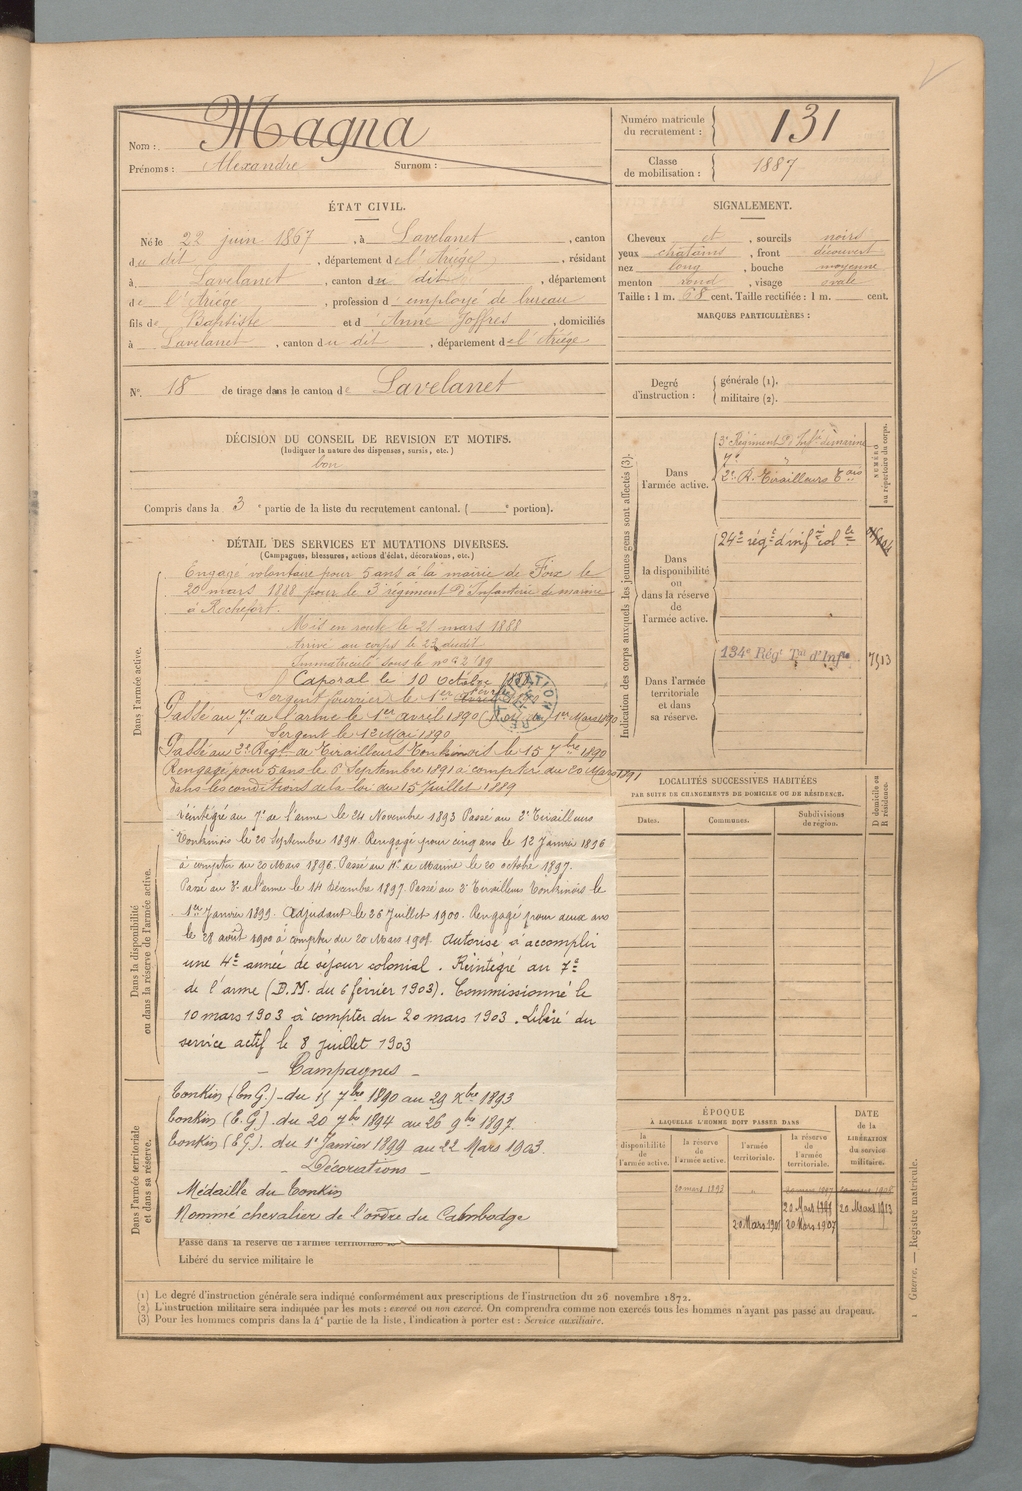 Nom : Magna
Prénoms : Alexandre Surnom :
Numéro matricule du recrutement : 131
Classe de mobilisation : 1887
ÉTAT CIVIL.
Né le 22 juin 1867, à Lavelanet, canton
du dit, département de l'Ariége, résidant
à Lavelanet, canton du dit, département
de l'Ariége, profession d'employé de bureau
fils de Baptiste et d'Anne Joffres, domiciliés
à Lavelanet, canton du dit, département de l'Ariége
N° 18 de tirage dans le canton de Lavelanet
SIGNALEMENT.
Cheveux et, sourcils noirs
yeux chatains, front découvert
nez long, bouche moyenne
menton rond, visage ovale
Taille : 1 m. 68 cent. Taille rectifiée : 1 m. cent.
MARQUES PARTICULIÈRES :
Degré d'instruction : générale (1).
militaire (2).
DÉCISION DU CONSEIL DE REVISION ET MOTIFS.
(Indiquer la nature des dispenses, sursis, etc.)
bon
Compris dans la 3e partie de la liste du recrutement cantonal. ( e portion).
DÉTAIL DES SERVICES ET MUTATIONS DIVERSES.
(Campagnes, blessures, actions d'éclat, décorations, etc.)
Dans l'armée active.
Engagé volontaire pour 5 ans à la mairie de Foix le
20 mars 1888 pour le 3e régiment d'Infanterie de marine
à Rochefort.
Mis en route le 21 mars 1888
Arrivé au corps le 23 dudit
Immatriculé sous le n°
Caporal le 10 octobre
Sergent fourrier le 1er
Passé au 7e de l'arme le 1er avril 1890 1er Mars 1890
Sergent le 12 Mai 1890
Passé au 2e Régt de Tirailleurs Tonkinois le 15 7bre 1890
Rengagé pour 5 ans le 6 Septembre 1891 à compter du 20 Mars 1891
dans les conditions de la loi du 15 Juillet 1889
Dans la disponibilité ou dans la réserve de l'armée active.
réintégré au 7e de l'arme le 24 Novembre 1893 Passé au 2e Tirailleurs
Tonkinois le 20 Septembre 1894. Rengagé pour cinq ans le 12 Janvier 1896
à compter du 20 Mars 1896. Passé au de Marine le 20 octobre 1897.
Passé au 7e de l'arme le 14 Décembre 1897. Passé au 2e Tirailleurs Tonkinois le
1er Janvier 1899. Adjudant le 26 Juillet 1900. Rengagé pour deux ans
le 28 août 1900 à compter du 20 Mars 1901. Autorisé à accomplir
une 4e année de séjour colonial. Réintégré au 7e
de l'arme (D.M. du 6 février 1903). Commissionné le
10 mars 1903 à compter du 20 mars 1903. Libéré du
service actif le 8 juillet 1903
- Campagnes -
Tonkin (En G.) - du 15 7bre 1890 au 29 Xbre 1893
Tonkin (E.G) du 20 7bre 1894 au 26 9bre 1897.
Tonkin (E.G). du 1er Janvier 1899 au 22 Mars 1903.
- Décorations -
Médaille du Tonkin
Nommé chevalier de l'ordre du Cambodge
Dans l'armée territoriale et dans sa réserve.
Passé dans la réserve de l'armée territoriale le
Libéré du service militaire le
Indication des corps auxquels les jeunes gens sont affectés (3).
NUMÉRO au répertoire du corps.
Dans l'armée active.
3e Régiment d'Infie de marine
7e "
2e R. Tirailleurs Tois
Dans la disponibilité ou dans la réserve de l'armée active.
24e rég. d'infie colle
Dans l'armée territoriale et dans sa réserve.
134e Régt Tal d'Infie 7513
LOCALITÉS SUCCESSIVES HABITÉES
PAR SUITE DE CHANGEMENTS DE DOMICILE OU DE RÉSIDENCE.
Dates. Communes. Subdivisions de région. D domicile ou R résidence.
ÉPOQUE
À LAQUELLE L'HOMME DOIT PASSER DANS
DATE de la LIBÉRATION du service militaire.
la disponibilité de l'armée active. la réserve de l'armée active. l'armée territoriale. la réserve de l'armée territoriale.
20 mars 1893
20 Mars 1913
20 Mars 1901 20 Mars 1907
(1) Le degré d'instruction générale sera indiqué conformément aux prescriptions de l'instruction du 26 novembre 1872.
(2) L'instruction militaire sera indiquée par les mots : exercé ou non exercé. On comprendra comme non exercés tous les hommes n'ayant pas passé au drapeau.
(3) Pour les hommes compris dans la 4e partie de la liste, l'indication à porter est : Service auxiliaire.
Guerre. — Registre matricule.